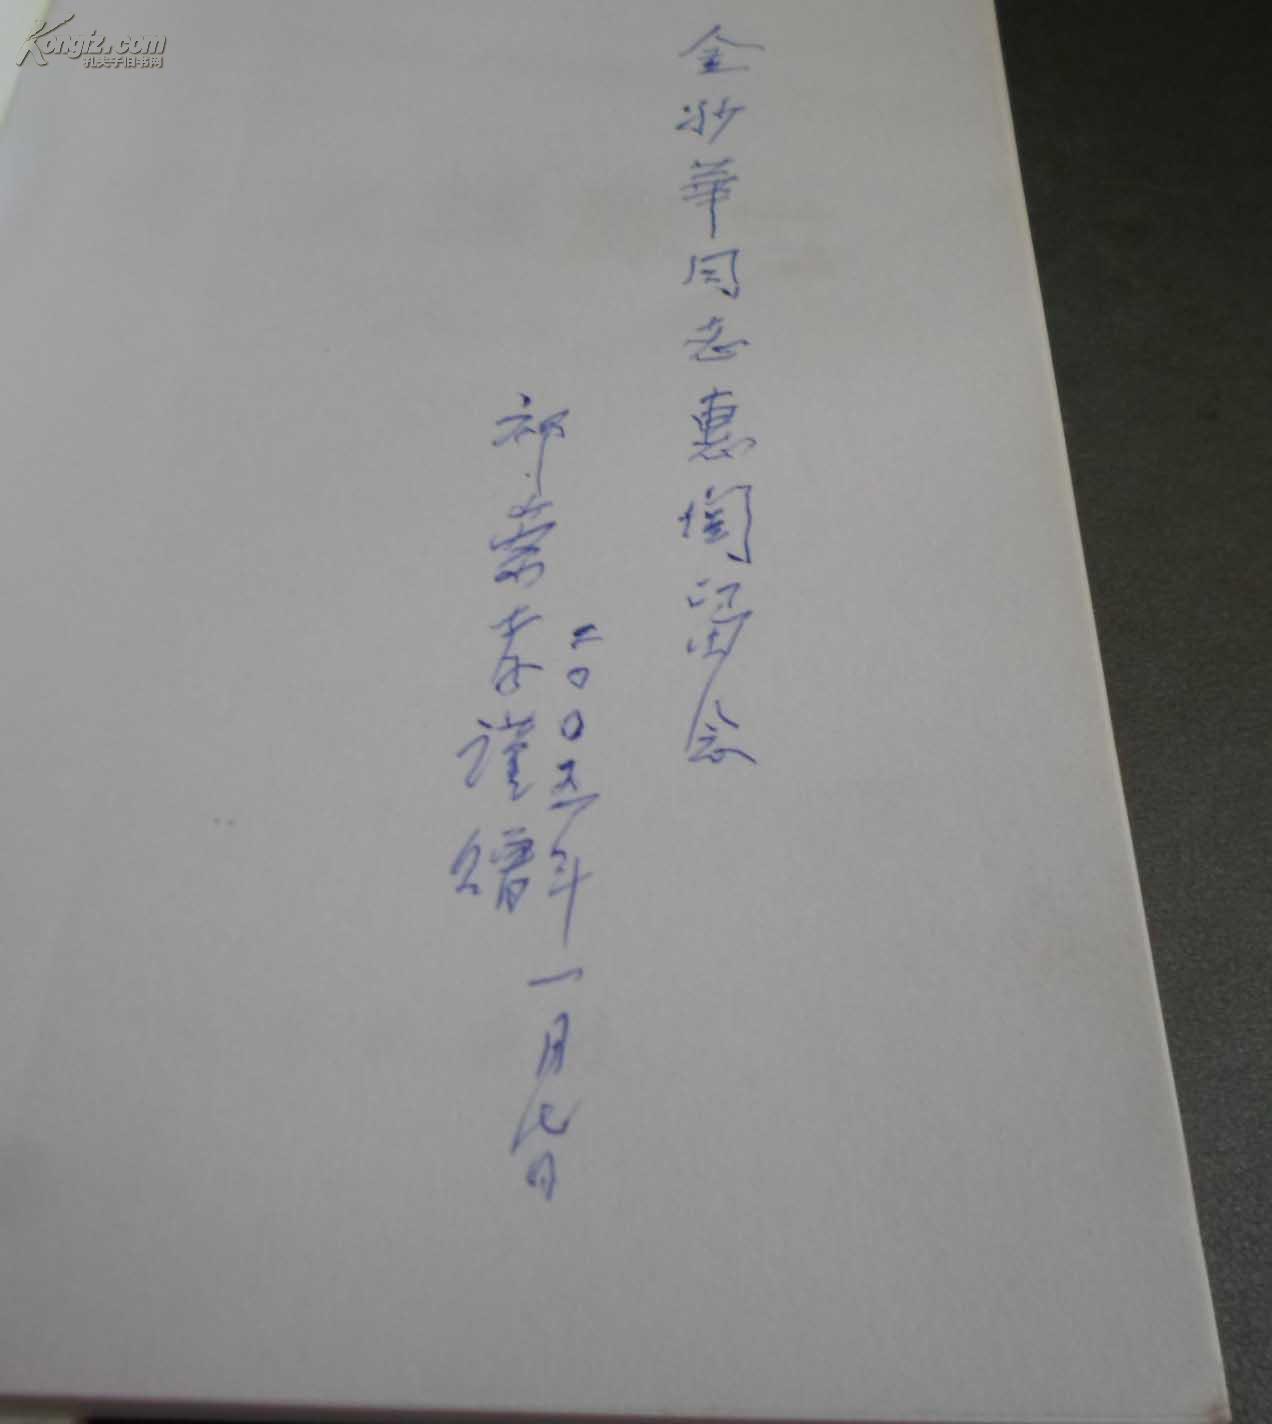 Kongfz.com
孔夫子旧书网
金沙華同志惠閱留念
祁崇孝謹贈
二〇〇五年一月七日